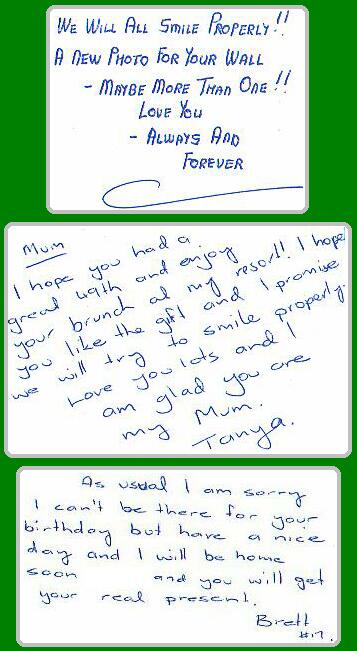 We Will All Smile Properly!!
A New Photo For Your Wall
- Maybe More Than One!!
Love You
- Always And
Forever
Mum
I hope you had a
great 49th and enjoy
your brunch at my resort! I hope
you like the gift and I promise
we will try to smile properly.
Love you lots and I
am glad you are
my Mum.
Tanya.
As usual I am sorry
I can't be there for your
birthday but have a nice
day and I will be home
soon and you will get
your real present.
Brett
#17.